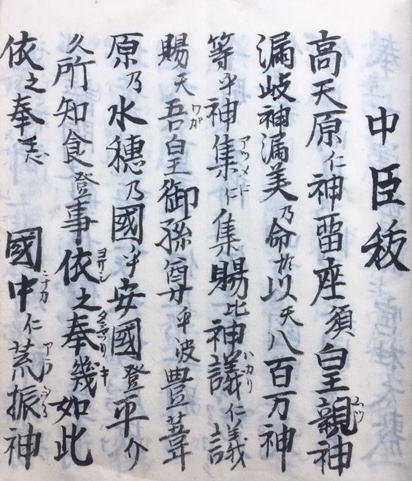 中臣秡
高天原仁神畱座須皇親神
漏岐神漏美乃命於以天八百万神
等乎神集仁集賜比神議仁議
賜天吾皇御孫尊乎波豊葦
原乃水穗乃國乎安國登平介
久所知食登事依之奉幾如此
依之奉志國中仁荒振神